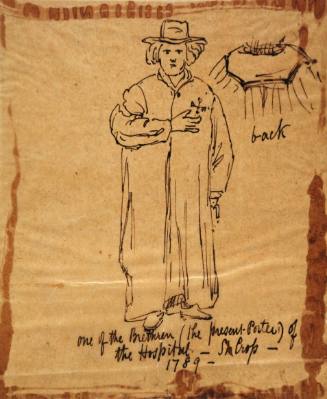 back
one of the Brethren (the present Porter) of
the Hospital — St Cross —
1789 —